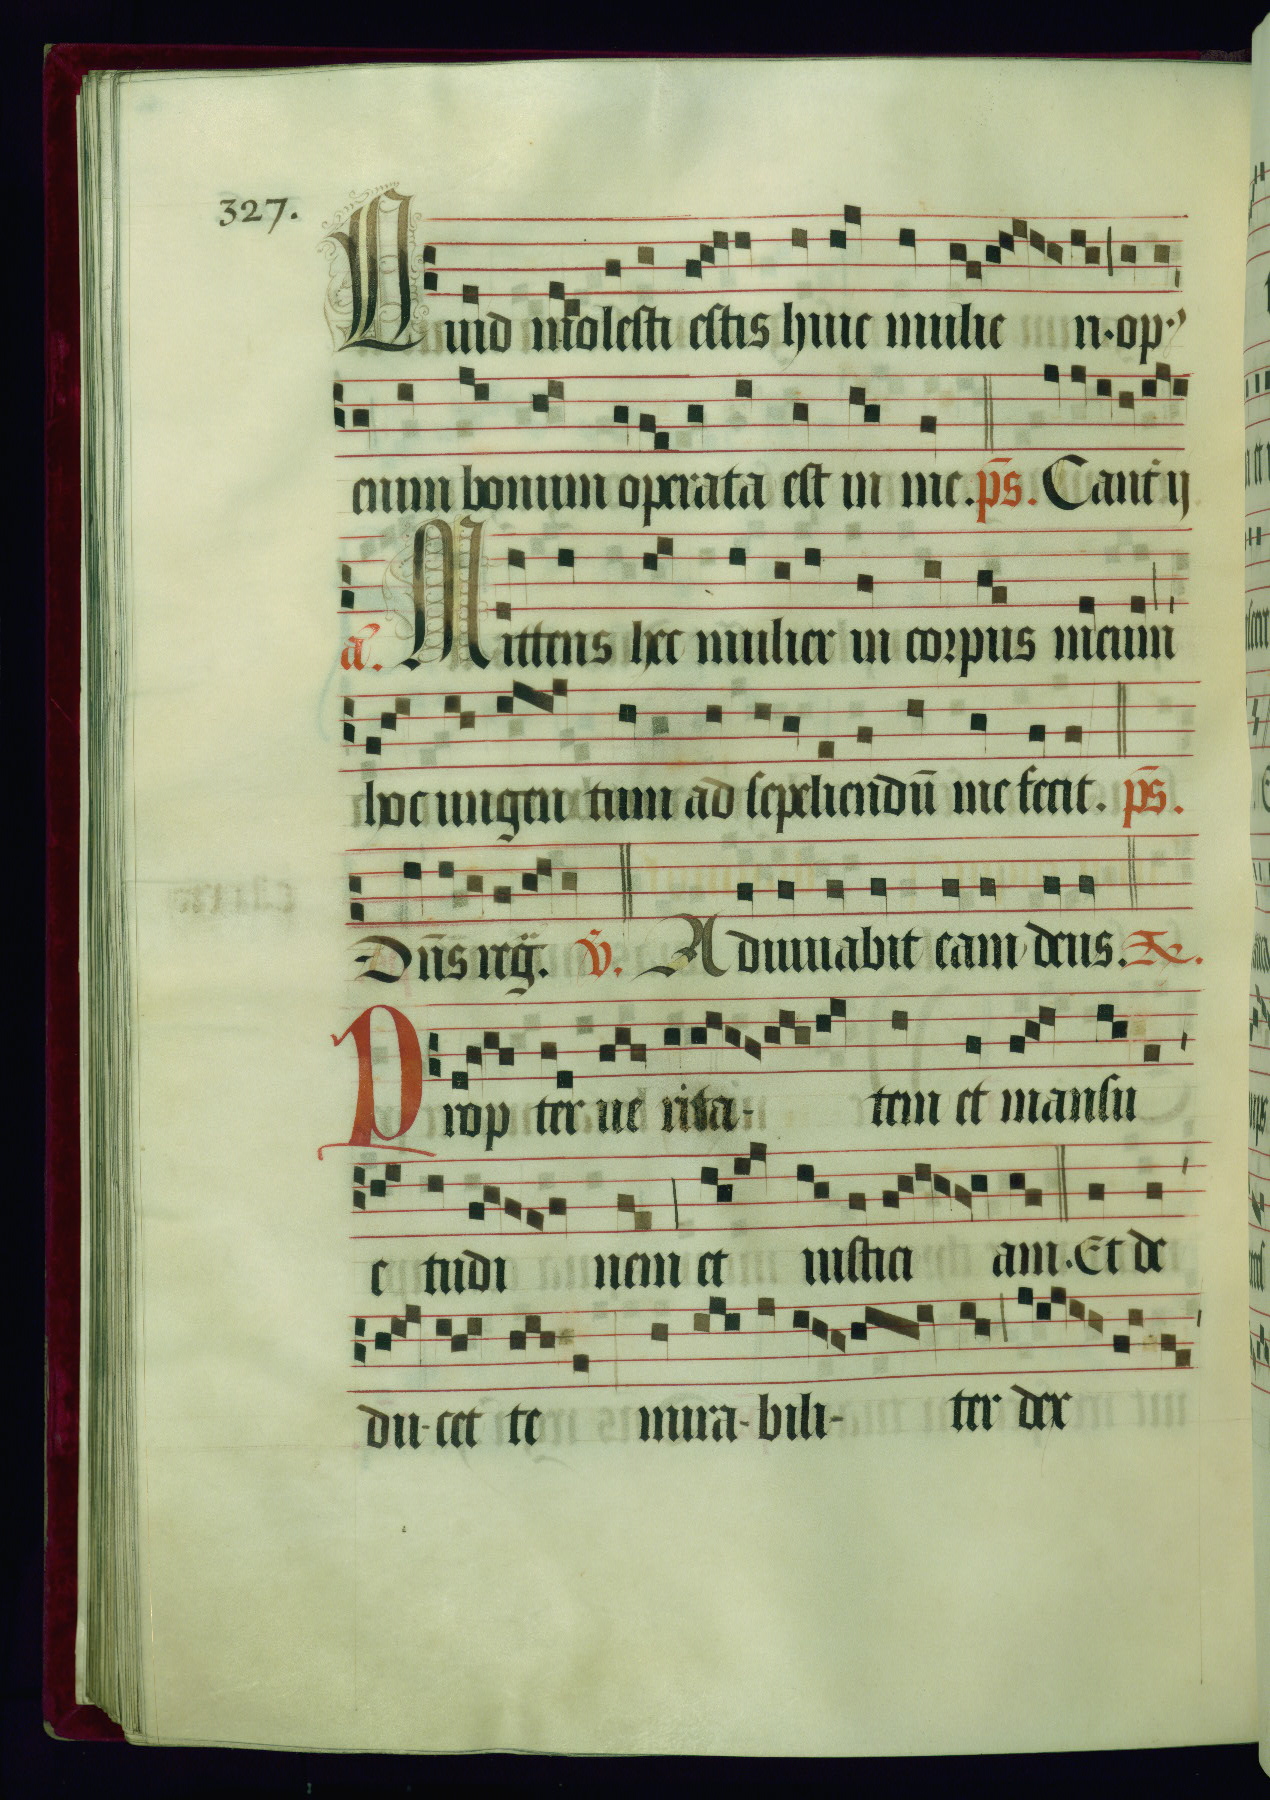 327.
Quid molesti estis huic mulie ri. op
enim bonum operata est in me. p̄s. Cant ij
a. Mittens hec mulier in corpus meum
hoc ungen tum ad sepeliendū me fecit. p̄s.
Dn̄s reg̈. v̄. Adiuuabit eam deus. R.
Prop ter ue rita- tem et mansu
e tudi nem et iustici am. Et de
du-cet te mira-bili- ter dex